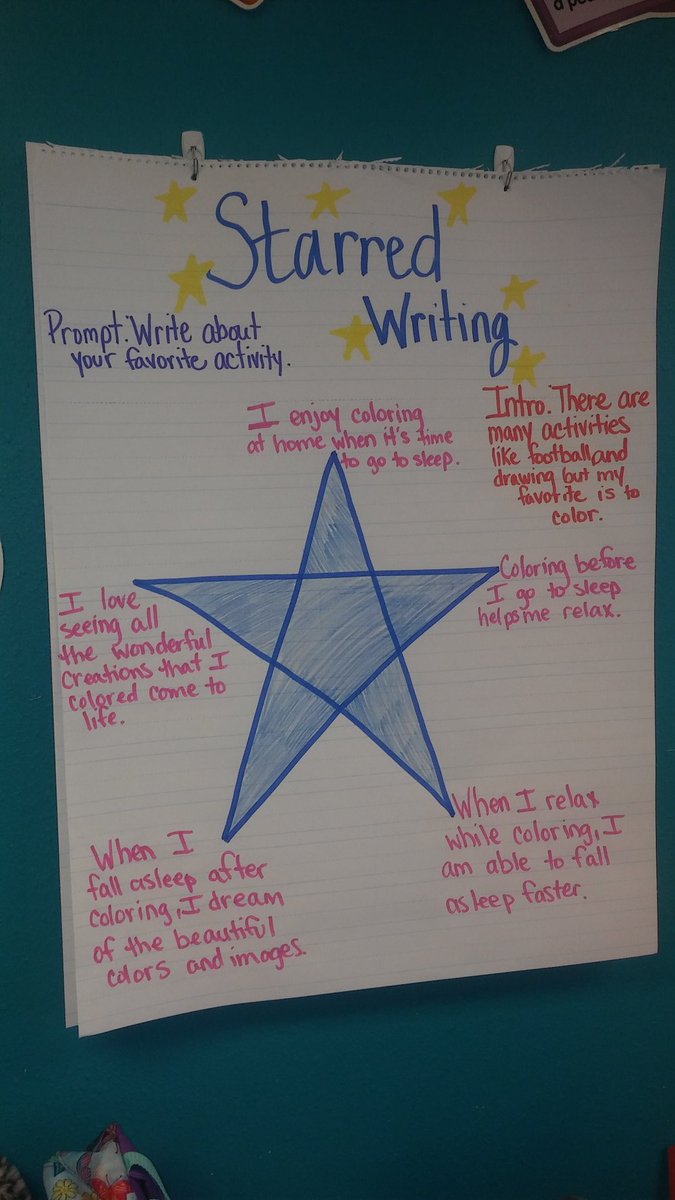 a pe
Starred
Writing
Prompt: Write about
your favorite activity.
I enjoy coloring
at home when it's time
to go to sleep.
Intro: There are
many activities
like football, and
drawing but my
favorite is to
color.
Coloring before
I go to sleep
helps me relax.
When I relax
while coloring, I
am able to fall
asleep faster.
When I
fall asleep after
coloring, I dream
of the beautiful
colors and images.
I love
seeing all
the wonderful
creations that I
colored come to
life.